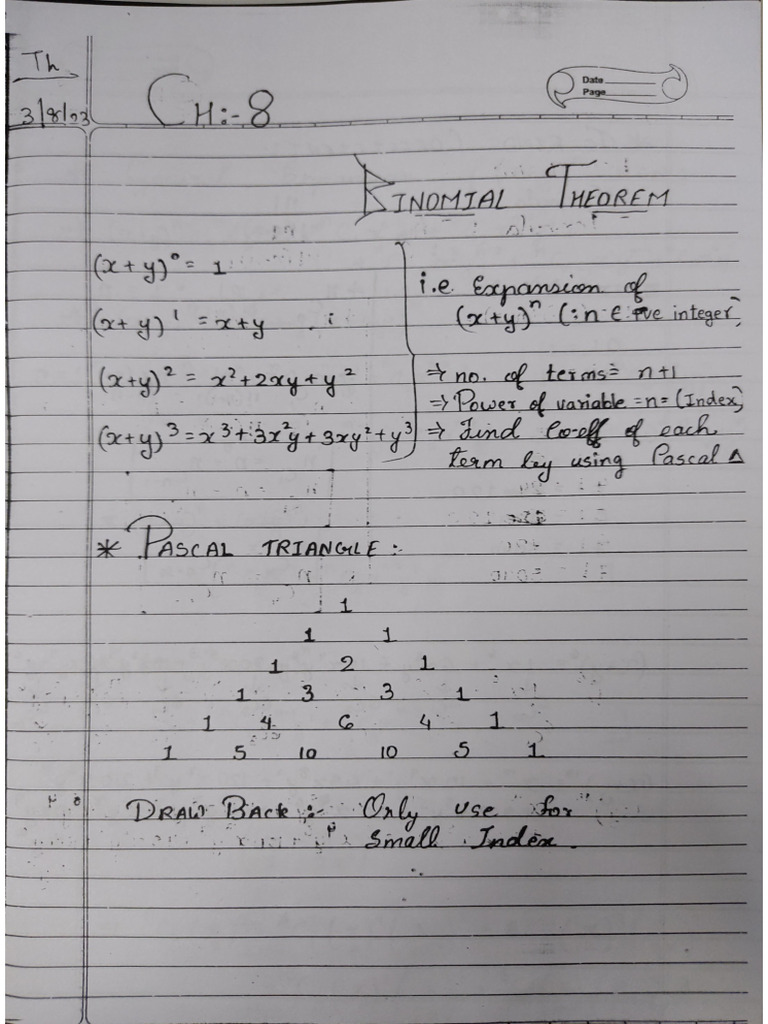 Th
3/8/23
Date
Page
CH:- 8
BINOMIAL THEOREM
(x+y)⁰ = 1
(x+y)¹ = x+y
(x+y)² = x²+2xy+y²
(x+y)³ = x³+3x²y+3xy²+y³
i.e Expansion of
(x+y)ⁿ (∵ n ∈ +ve integer)
⇒ no. of terms = n+1
⇒ Power of variable = n = (Index)
⇒ Find co-eff of each
term by using Pascal △
* PASCAL TRIANGLE :-
1
1 1
1 2 1
1 3 3 1
1 4 6 4 1
1 5 10 10 5 1
DRAW BACK :- Only use for
Small Index.